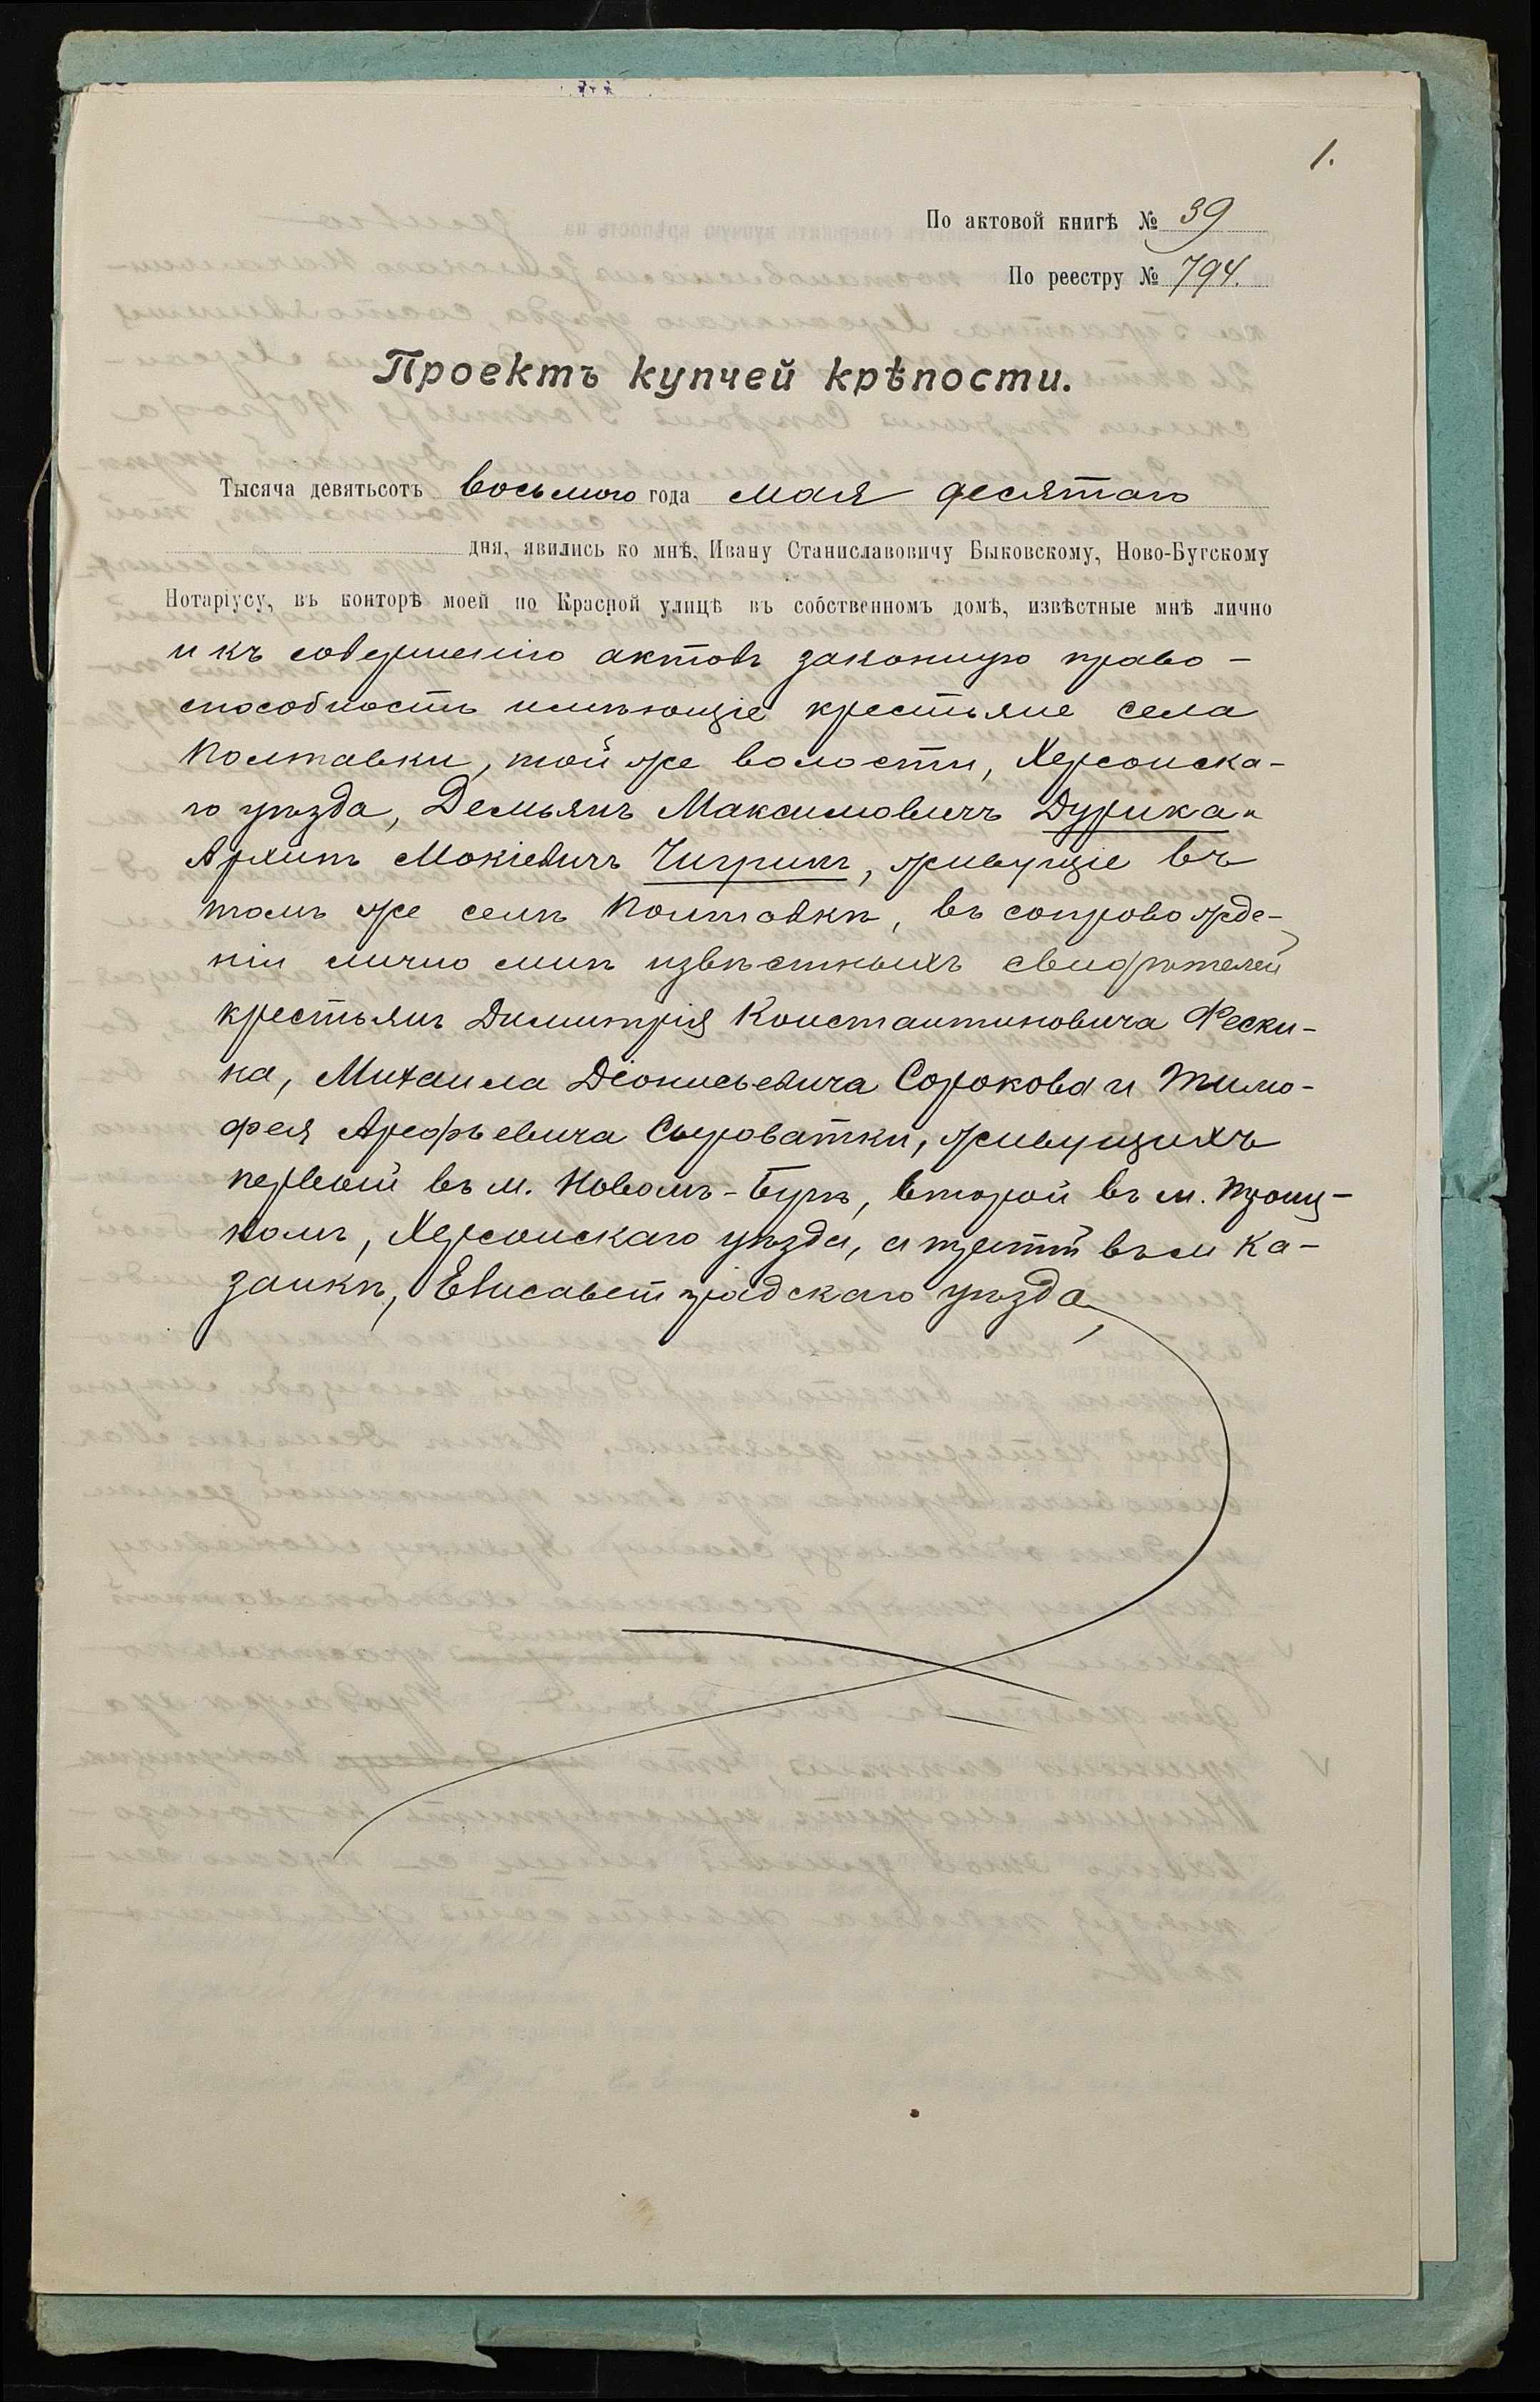 1.
По актовой книгѣ № 39
По реестру № 794.
Проектъ купчей крѣпости.
Тысяча девятьсотъ восьмого года мая десятаго
дня, явились ко мнѣ, Ивану Станиславовичу Быковскому, Ново-Бугскому
Нотаріусу, въ конторѣ моей по Красной улицѣ въ собственномъ домѣ, извѣстные мнѣ лично
и къ совершенію актовъ законную право-
способность имѣющіе крестьяне села
Полтавки, той же волости, Херсонска-
го уѣзда, Демьянъ Максимовичъ Дурика и
Архипъ Мокіевичъ Чигринъ, живущіе въ
томъ же селѣ Полтавкѣ, въ сопровожде-
ніи лично мнѣ извѣстныхъ свидѣтелей
крестьянъ Димитрія Константиновича Фески-
на, Михаила Діонисьевича Сорокова и Тимо-
фея Арефьевича Сыроватки, живущихъ
первый въ м. Новомъ-Бугѣ, второй въ м. Троиц-
комъ, Херсонскаго уѣзда, а третій въ м. Ка-
занкѣ, Елисаветградскаго уѣзда,